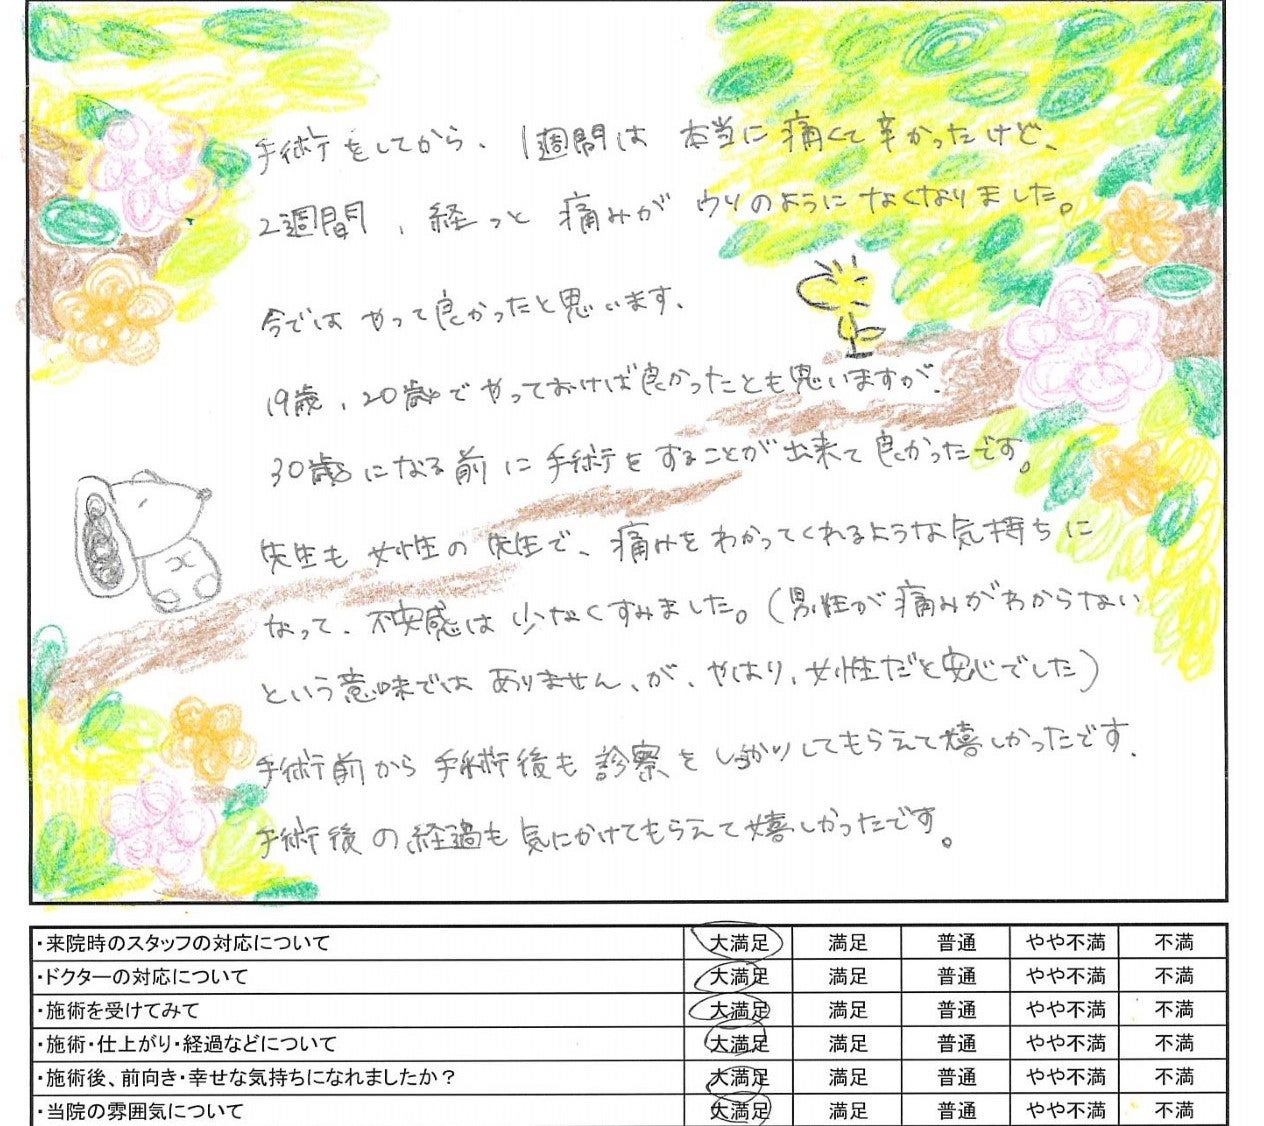 手術をしてから、1週間は 本当に痛くて辛かったけど、
2週間、経つと 痛みが ウソのように なくなりました。
今では やって良かったと思います、
19歳、20歳で やっておけば良かったとも思いますが、
30歳になる前に手術をすることが出来て良かったです。
先生も女性の先生で、痛みをわかってくれるような気持ちに
なって、不安感は少なくすみました。(男性が痛みがわからない
という意味では ありません、が、やはり、女性だと安心でした)
手術前から手術後も診察をしっかりしてもらえて嬉しかったです、
手術後の経過も気にかけてもらえて嬉しかったです。
・来院時のスタッフの対応について 大満足 満足 普通 やや不満 不満
・ドクターの対応について 大満足 満足 普通 やや不満 不満
・施術を受けてみて 大満足 満足 普通 やや不満 不満
・施術・仕上がり・経過などについて 大満足 満足 普通 やや不満 不満
・施術後、前向き・幸せな気持ちになれましたか？ 大満足 満足 普通 やや不満 不満
・当院の雰囲気について 大満足 満足 普通 やや不満 不満